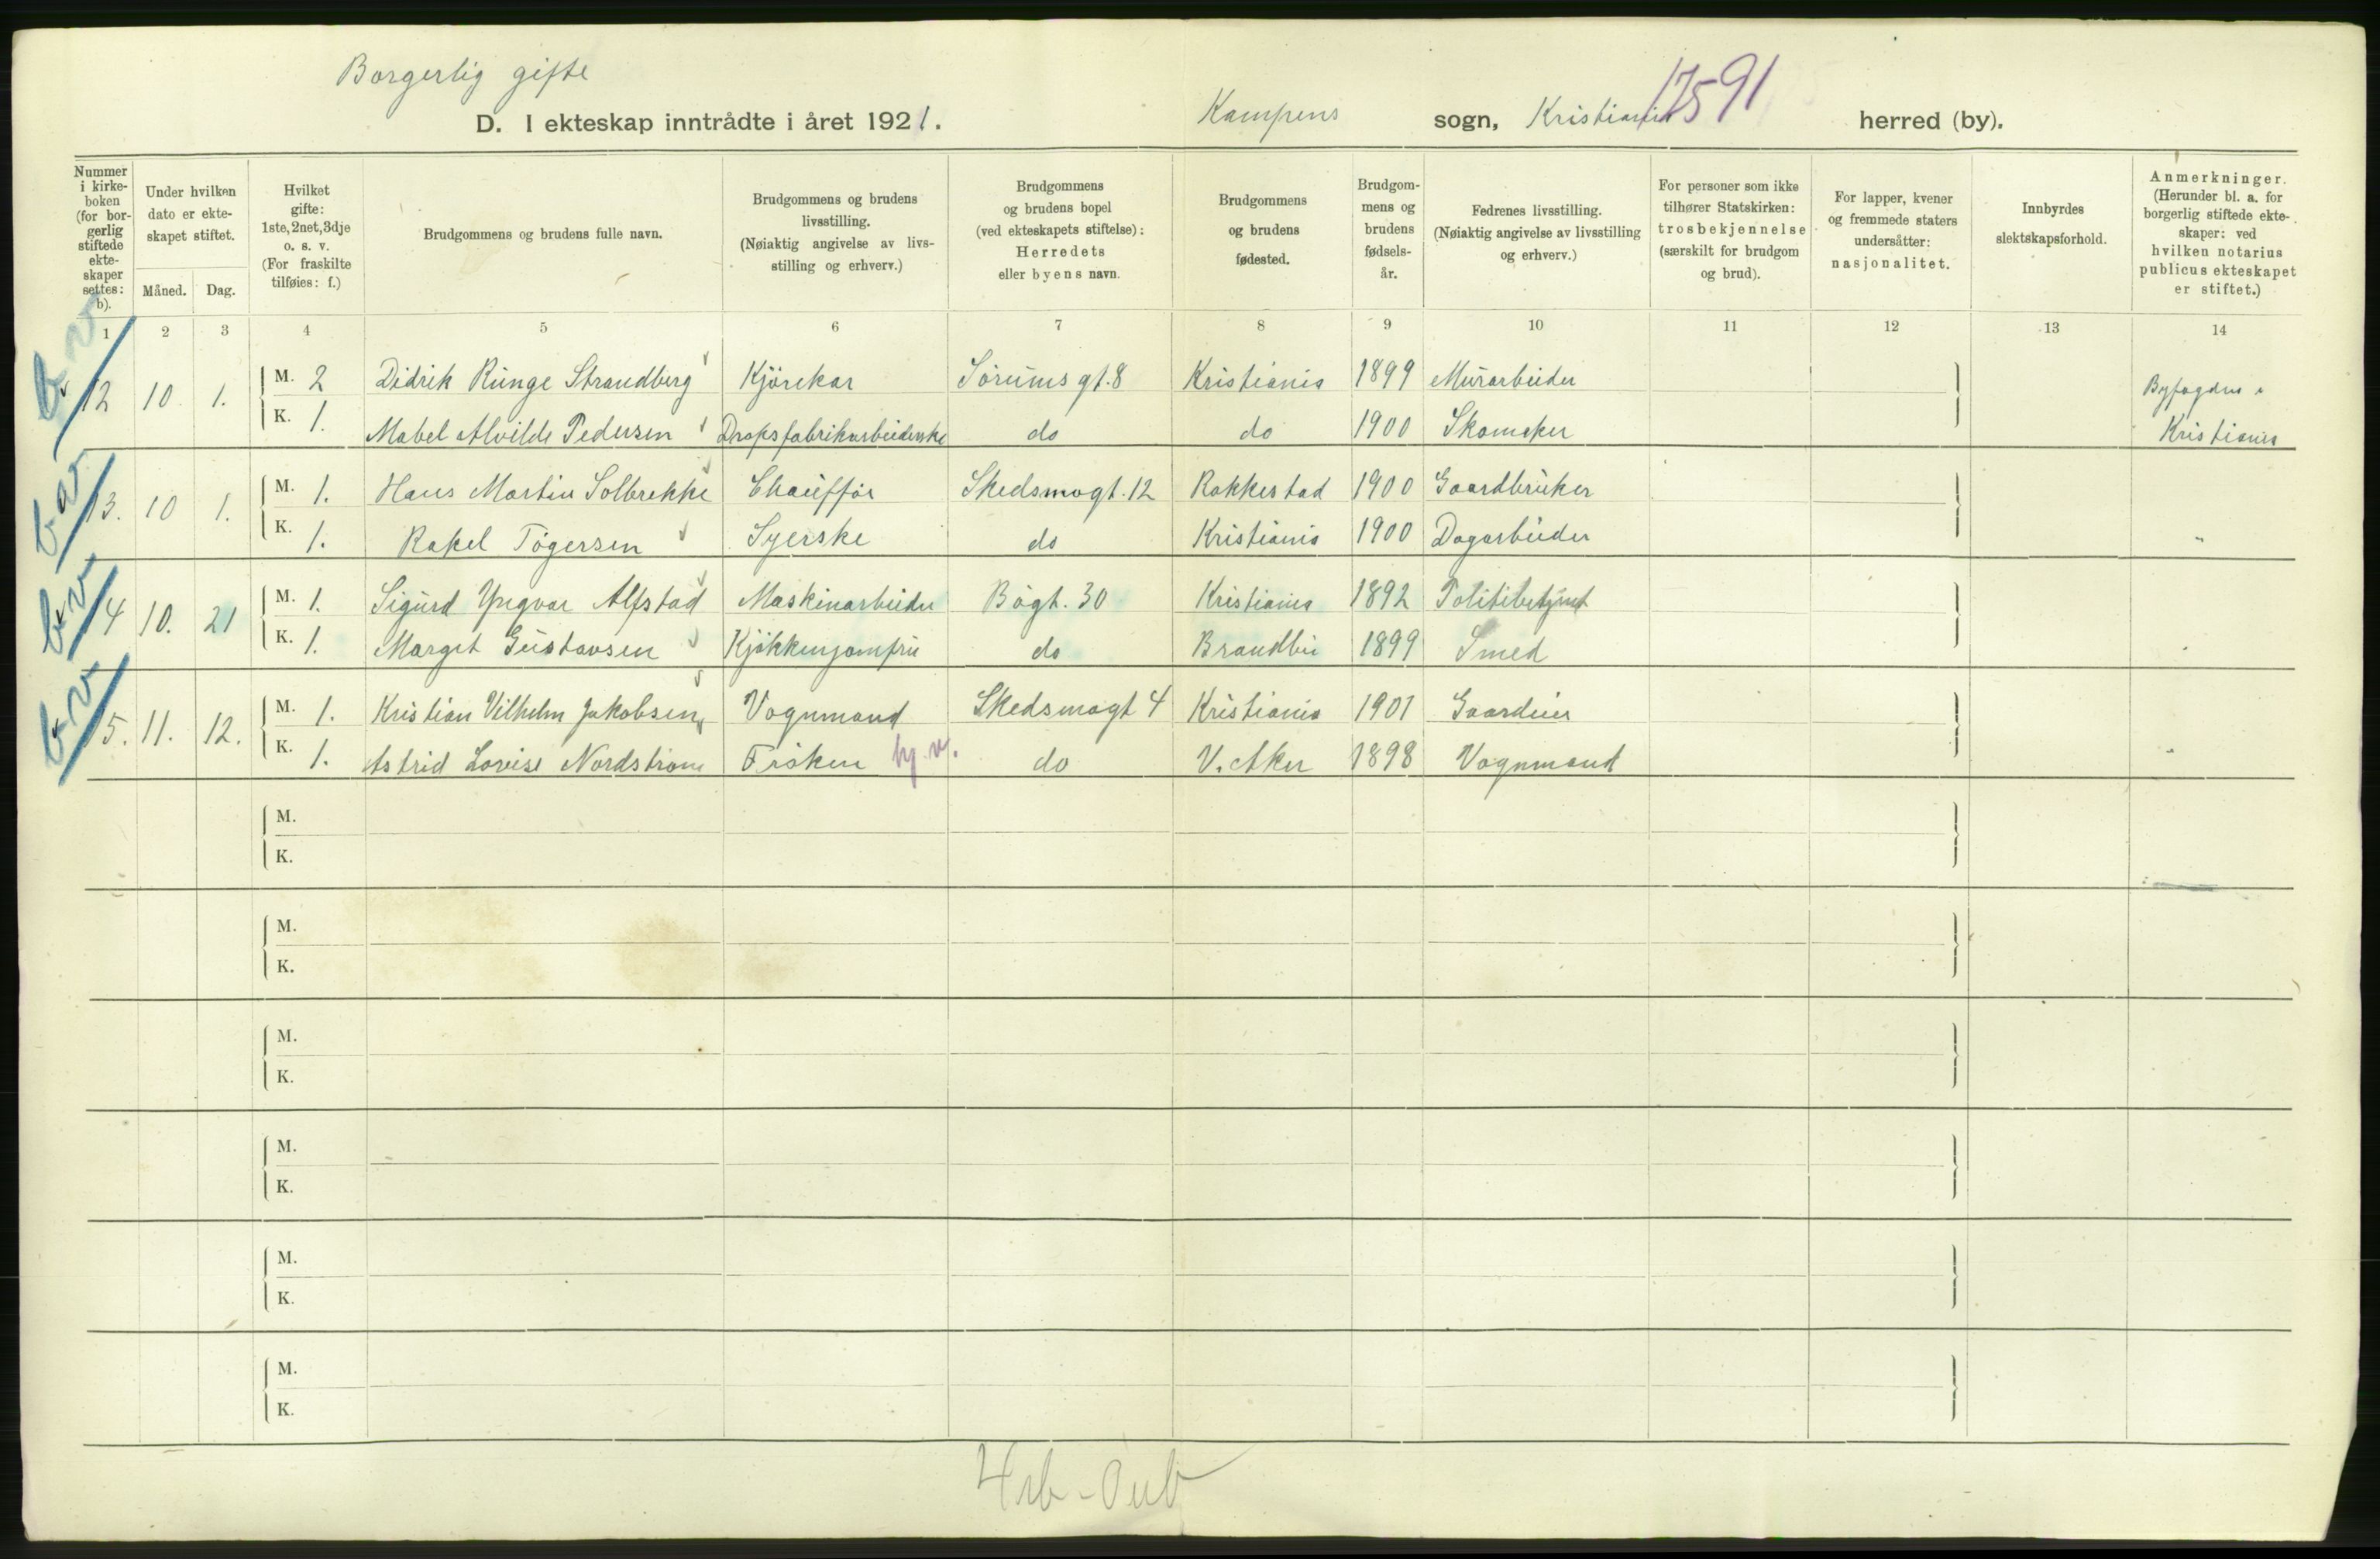 Borgerlig gifte
D. I ekteskap inntrådte i året 1921.
Kampens sogn, Kristiania herred (by).
17591
Nummer i kirke- boken (for bor- gerlig stiftede ekte- skaper settes: b).
Under hvilken dato er ekte- skapet stiftet.
Måned. Dag.
Hvilket gifte: 1ste, 2net, 3dje o. s. v. (For fraskilte tilføies: f.)
Brudgommens og brudens fulle navn.
Brudgommens og brudens livsstilling. (Nøiaktig angivelse av livs- stilling og erhverv.)
Brudgommens og brudens bopel (ved ekteskapets stiftelse): Herredets eller byens navn.
Brudgommens og brudens fødested.
Brudgom- mens og brudens fødsels- år.
Fedrenes livsstilling. (Nøiaktig angivelse av livsstilling og erhverv.)
For personer som ikke tilhører Statskirken: trosbekjennelse (særskilt for brudgom og brud).
For lapper, kvener og fremmede staters undersåtter: nasjonalitet.
Innbyrdes slektskapsforhold.
Anmerkninger. (Herunder bl. a. for borgerlig stiftede ekte- skaper: ved hvilken notarius publicus ekteskapet er stiftet.)
1 2 3 4 5 6 7 8 9 10 11 12 13 14
12 10. 1. M. 2 Didrik Runge Strandberg Kjörekar Sörums gt. 8 Kristiania 1899 Murarbeider Byfogden i
K. 1. Mabel Alvilde Pedersen Dropsfabrikarbeiderske do do 1900 Skomaker Kristiania
13. 10 1. M. 1. Hans Martin Solbrekke Chaufför Skedsmogt. 12 Rakkestad 1900 Gaardbruker
K. 1. Rakel Tögersen Syerske do Kristiania 1900 Dagarbeider "
14 10. 21 M. 1. Sigurd Yngvar Alfstad Maskinarbeider Bögt. 30 Kristiania 1892 Politibetjent
K. 1. Margit Gustavsen Kjökkenjomfru do Brandbu 1899 Smed "
15. 11. 12. M. 1. Kristian Vilhelm Jakobsen Vognmand Skedsmogt 4 Kristiania 1901 Gaardeier
K. 1. Astrid Lovise Nordström Fröken hj. v. do V. Aker 1898 Vognmand "
M.
K.
M.
K.
M.
K.
M.
K.
M.
K.
M.
K.